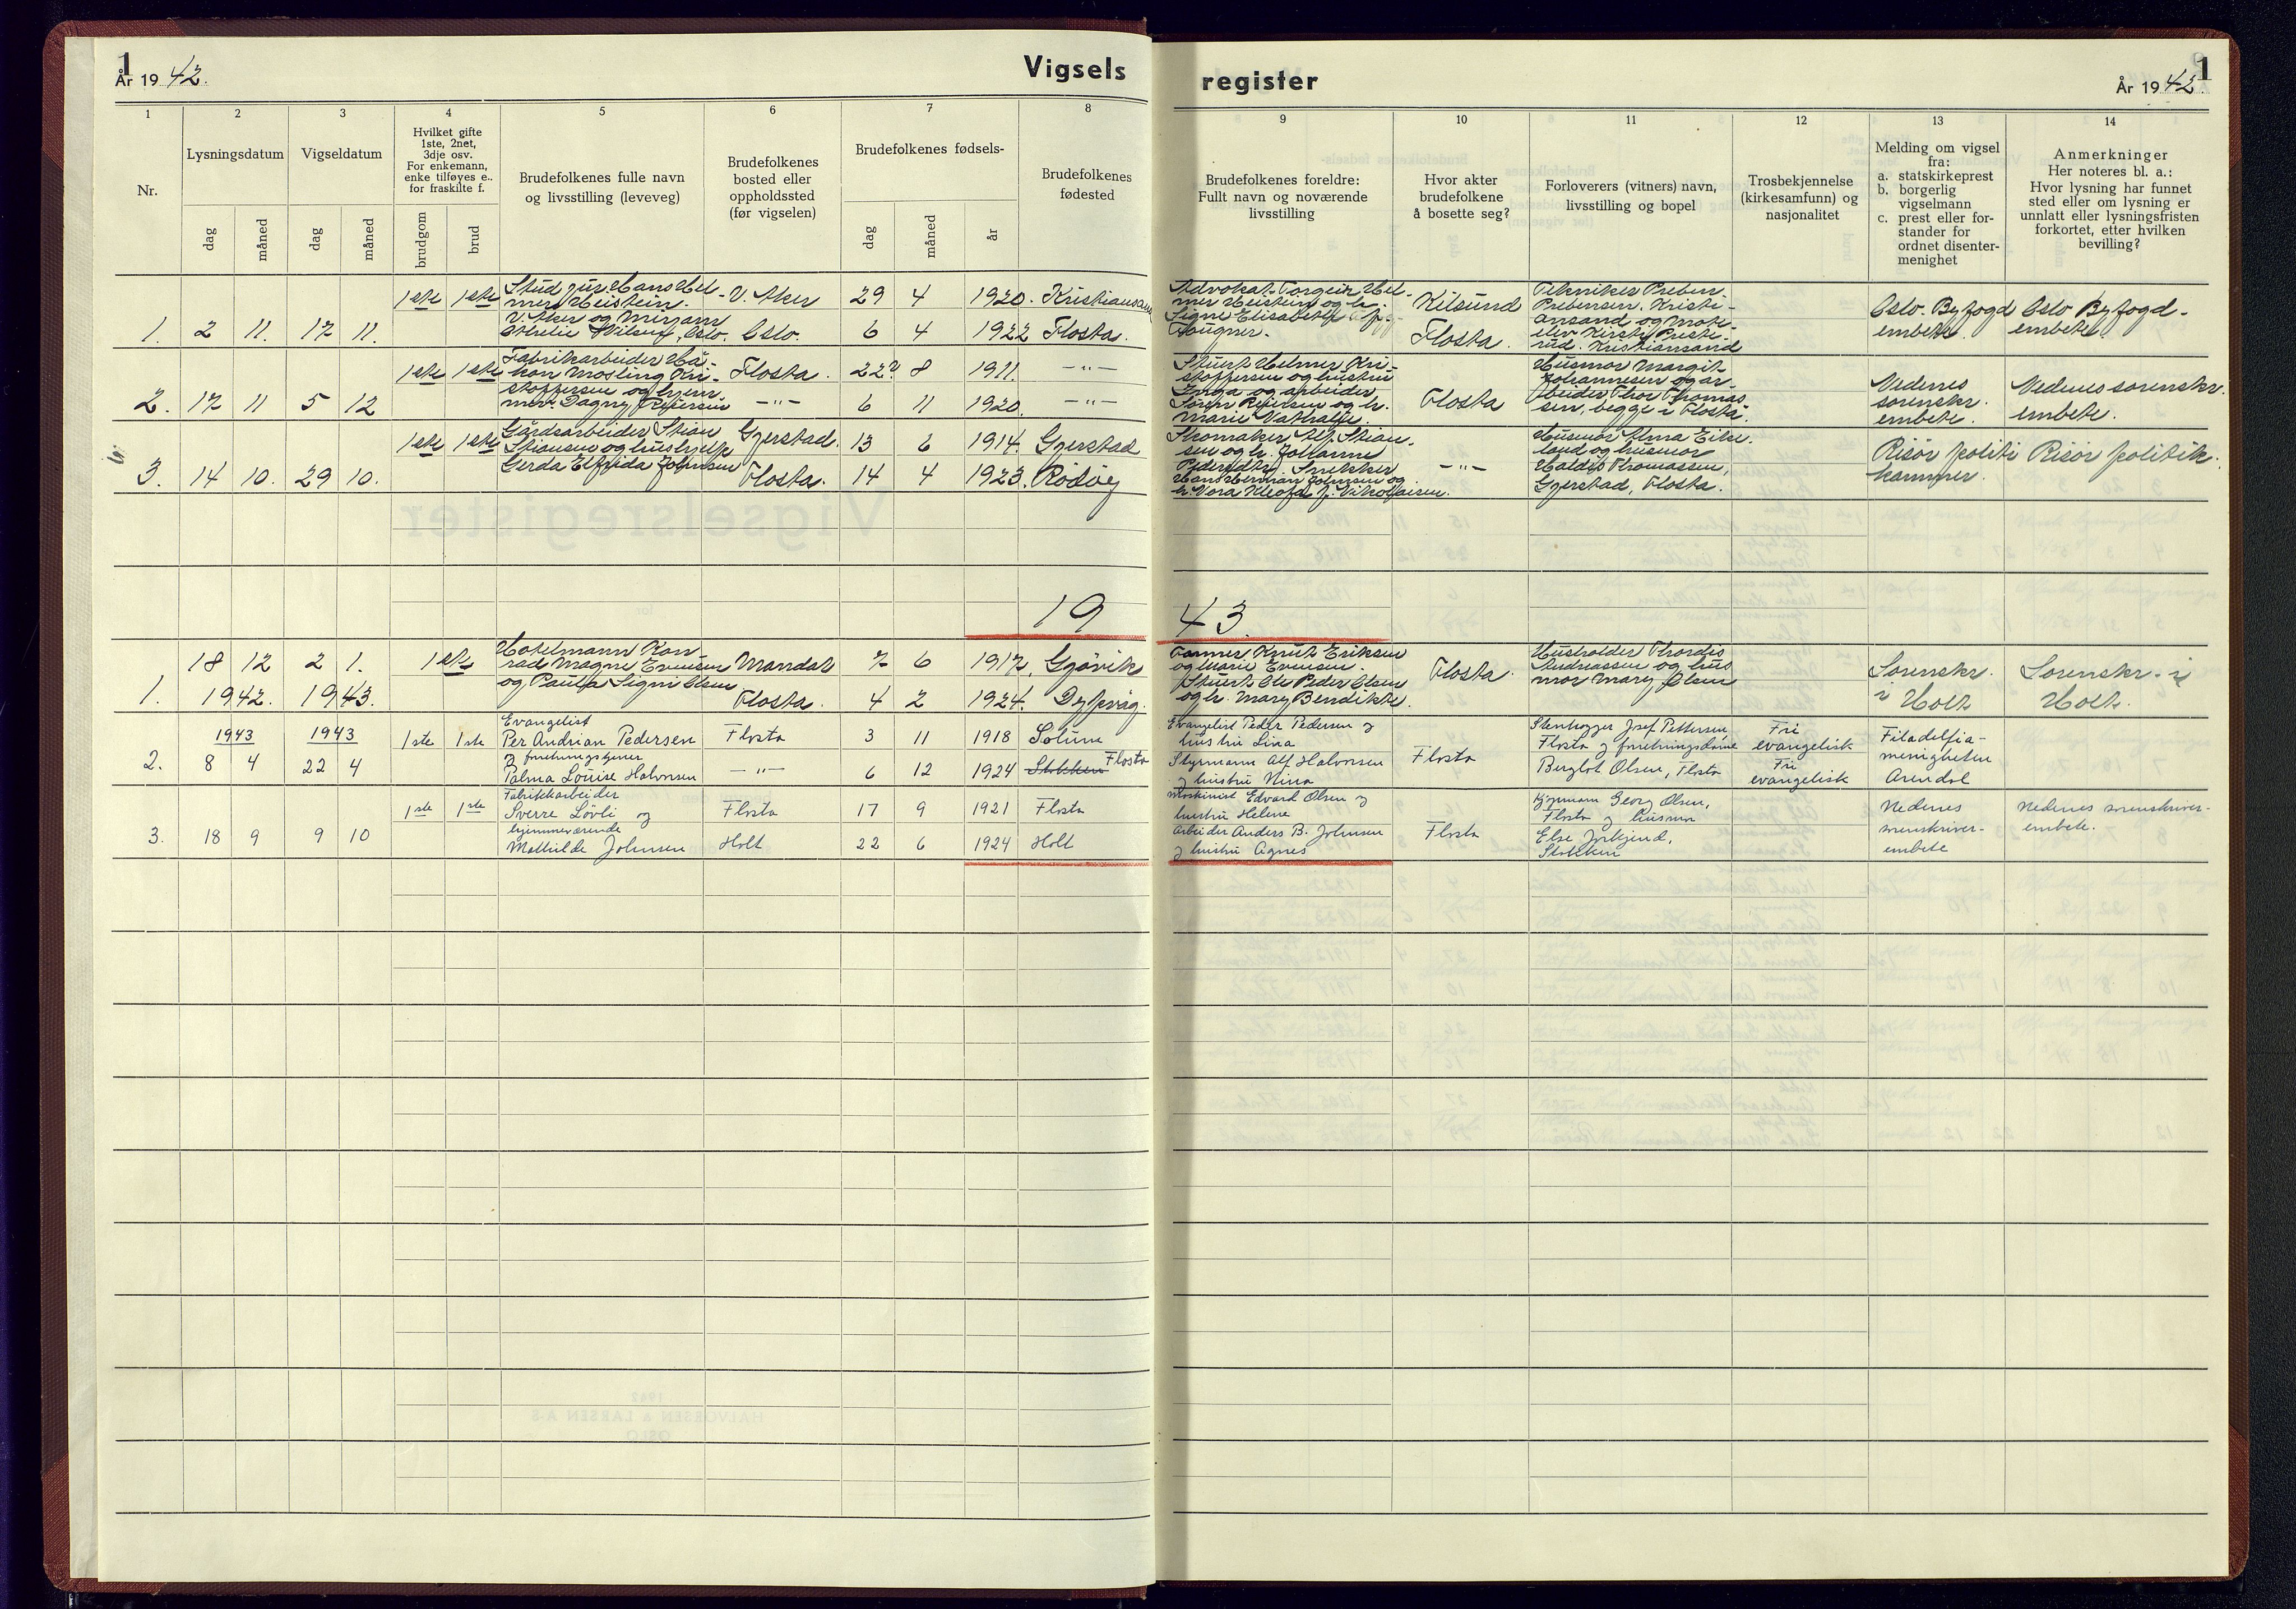 1
År 1942.
Vigsels
register
1
År 1942.
1
2
3
4
5
6
7
8
9
10
11
12
13
14
Nr.
Lysningsdatum
Vigseldatum
Hvilket gifte
1ste, 2net,
3dje osv.
For enkemann,
enke tilføyes e..
for fraskilte f.
Brudefolkenes fulle navn
og livsstilling (leveveg)
Brudefolkenes
bosted eller
oppholdssted
(før vigselen)
Brudefolkenes fødsels-
Brudefolkenes
fødested
dag
måned
dag
måned
brudgom
brud
dag
måned
år
Brudefolkenes foreldre:
Fullt navn og noværende
livsstilling
Hvor akter
brudefolkene
å bosette seg?
Forloverers (vitners) navn,
livsstilling og bopel
Trosbekjennelse
(kirkesamfunn) og
nasjonalitet
Melding om vigsel
fra:
a. statskirkeprest
b. borgerlig
vigselmann
c. prest eller for-
stander for
ordnet disenter-
menighet
Anmerkninger
Her noteres bl. a.:
Hvor lysning har funnet
sted eller om lysning er
unnlatt eller lysningsfristen
forkortet, etter hvilken
bevilling?
1. 2 11. 17 11.
1ste 1ste
Stud jur. Hans Hel-
mer Heistein.
V. Aker og Mirjam
Nilsen, Oslo.
V. Aker 29 4 1920. Kristiansand
Oslo. 6 4 1922 Flosta.
Advokat Torgeir Hel-
mer Heistein og h.
Signe Elisabeth
Kilsund
Flosta.
Tekniker Preben
Prebensen, Kristi-
ansand og
Kristiansand
Oslo Byfogd
embete.
Oslo Byfogd-
embete.
2. 17 11 5 12
1ste 1ste
Fabrikarbeider Hå-
kon Mosling Kri-
stoffersen og hjem-
mev. Dagny Petersen
Flosta. 22? 8 1911. —"—
—"— 6 11 1920. —"—
Stuert Helmer Kri-
stoffersen og hustru
Inga og arbeider
Søren Petersen og h.
Marie
Flosta
Husmor Margit
Johannesen og ar-
beider Thor Thomas-
sen, begge i Flosta.
Nedenes
sorenskr.
embete.
Nedenes sorenskr.
embete.
3. 14 10. 29 10.
1ste 1ste
Gårdsarbeider Stian
Stiansen og hushjelp
Gerda Elfrida Johnsen
Gjerstad. 13 6 1914. Gjerstad
Flosta. 14 4 1923. Rödöy
Skomaker Alf Stian-
sen og h. Johanne
Snekker
Hans Herman Johnsen og
h. Vora f. Nikolaisen.
—"—
Husmor Alma Eike-
land og husmor
Haldis Thomassen,
Gjerstad, Flosta.
Risör politi
kammer.
Risör politik.
19 43.
1. 18 12 2 1.
1942. 1943.
1ste
Hotelmann Kon-
rad Magne Evensen
og Paula Signi Olsen
Mandal 7 6 1917. Gjövik
Flosta. 4 2 1924. Dypvåg.
Farmer Knut Eriksen
og Marie Evensen.
Stuert Ole Peder Olsen
og h. Mary Bendikte.
Flosta.
Husholder Thordis
Andreassen og hus
mor Mary Olsen
Sorenskr.
i Holt
Sorenskr. i
Holt.
1943 1943
2. 8 4 22 4
1ste 1ste
Evangelist
Per Andrian Pedersen
og forretningstjener
Palma Louise Halvorsen
Flosta 3 11 1918 Solum
—"— 6 12 1924 Stokken Flosta
Evangelist Peder Pedersen og
hustru Lina
Styrmann Alf Halvorsen
og hustru Nina
Flosta
Stenhogger Josef Pettersen,
Flosta og forretningsdame
Bergliot Olsen, Flosta
Fri
evangelisk
Fri
evangelisk
Filadelfia-
menigheten
Arendal
3. 18 9 9 10
1ste 1ste
Fabrikkarbeider
Sverre Lövli og
hjemmeværende
Mathilde Johnsen
Flosta 17 9 1921 Flosta
Holt 22 6 1924 Holt
Maskinist Edvard Olsen og
hustru Helene
Arbeider Anders B. Johnsen
og hustru Agnes
Flosta
Kjöpmann Georg Olsen,
Flosta og husmor
Else
Stokken
Nedenes
sorenskriver-
embete
Nedenes sorenskriver-
embete.